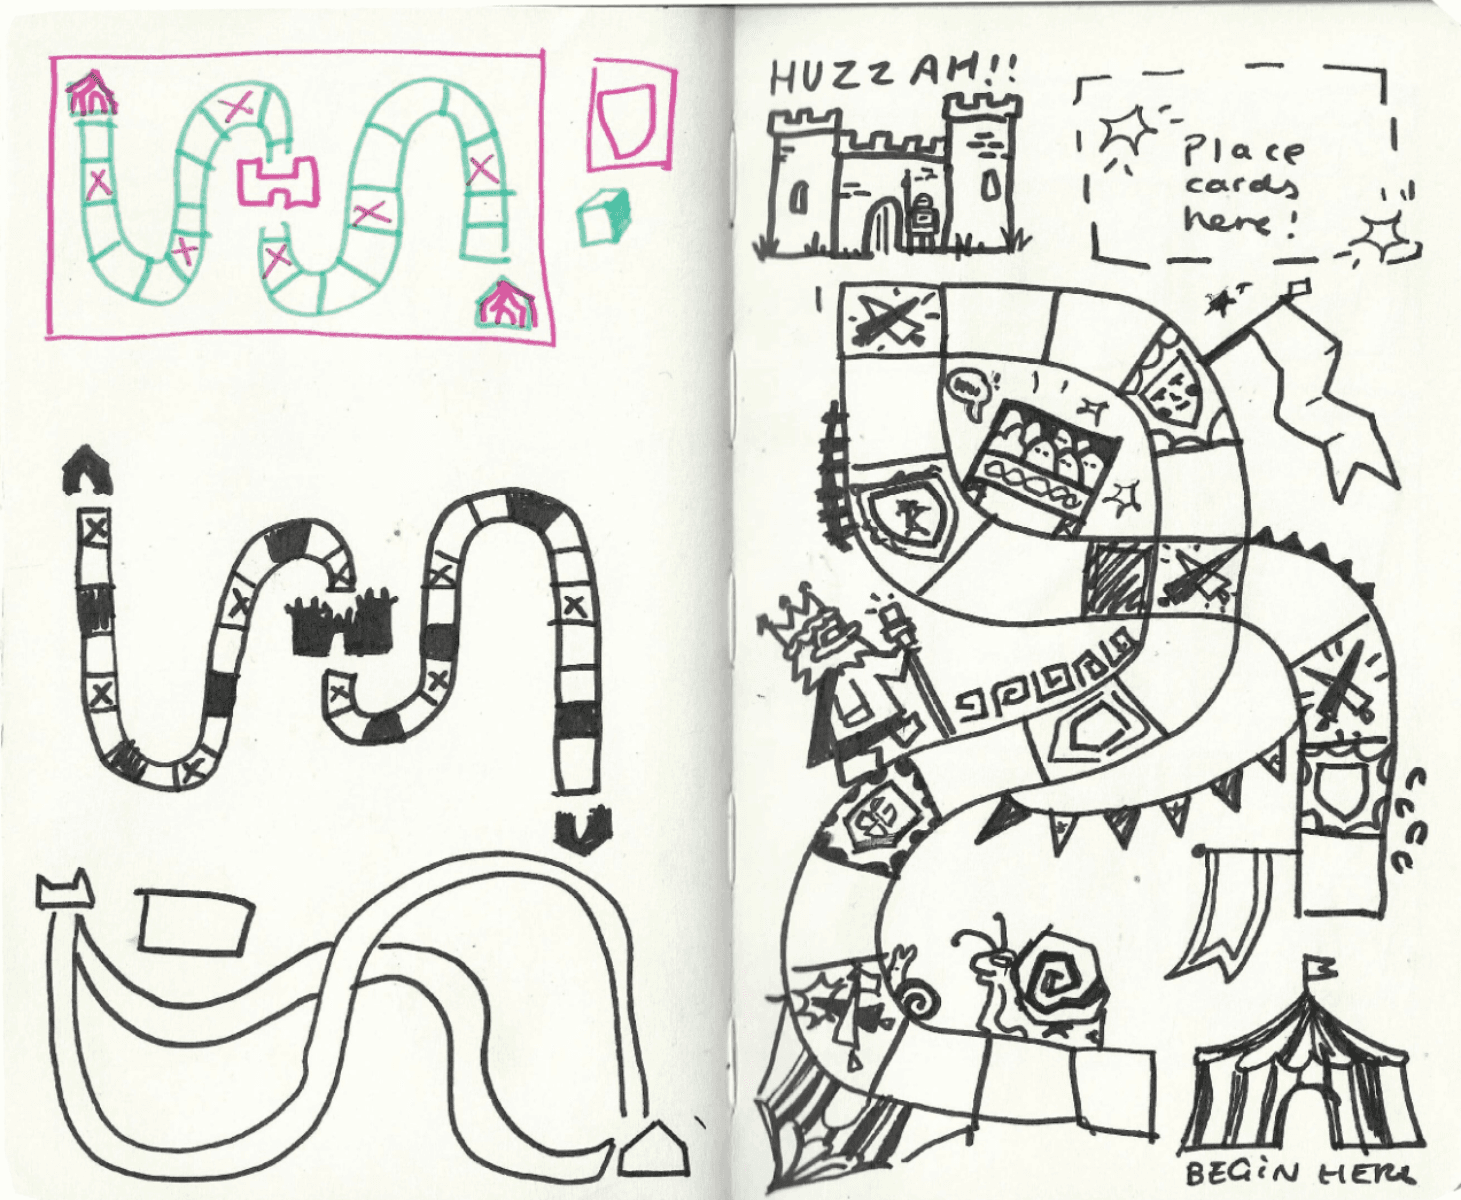 HUZZAH!!
Place
cards
here!
BEGIN HERE